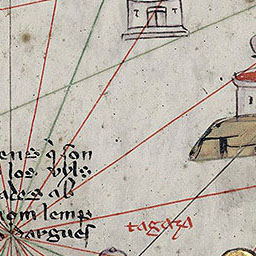 ens q̄ son
los uyls
ades al
hom lemp
dargues
tagaza